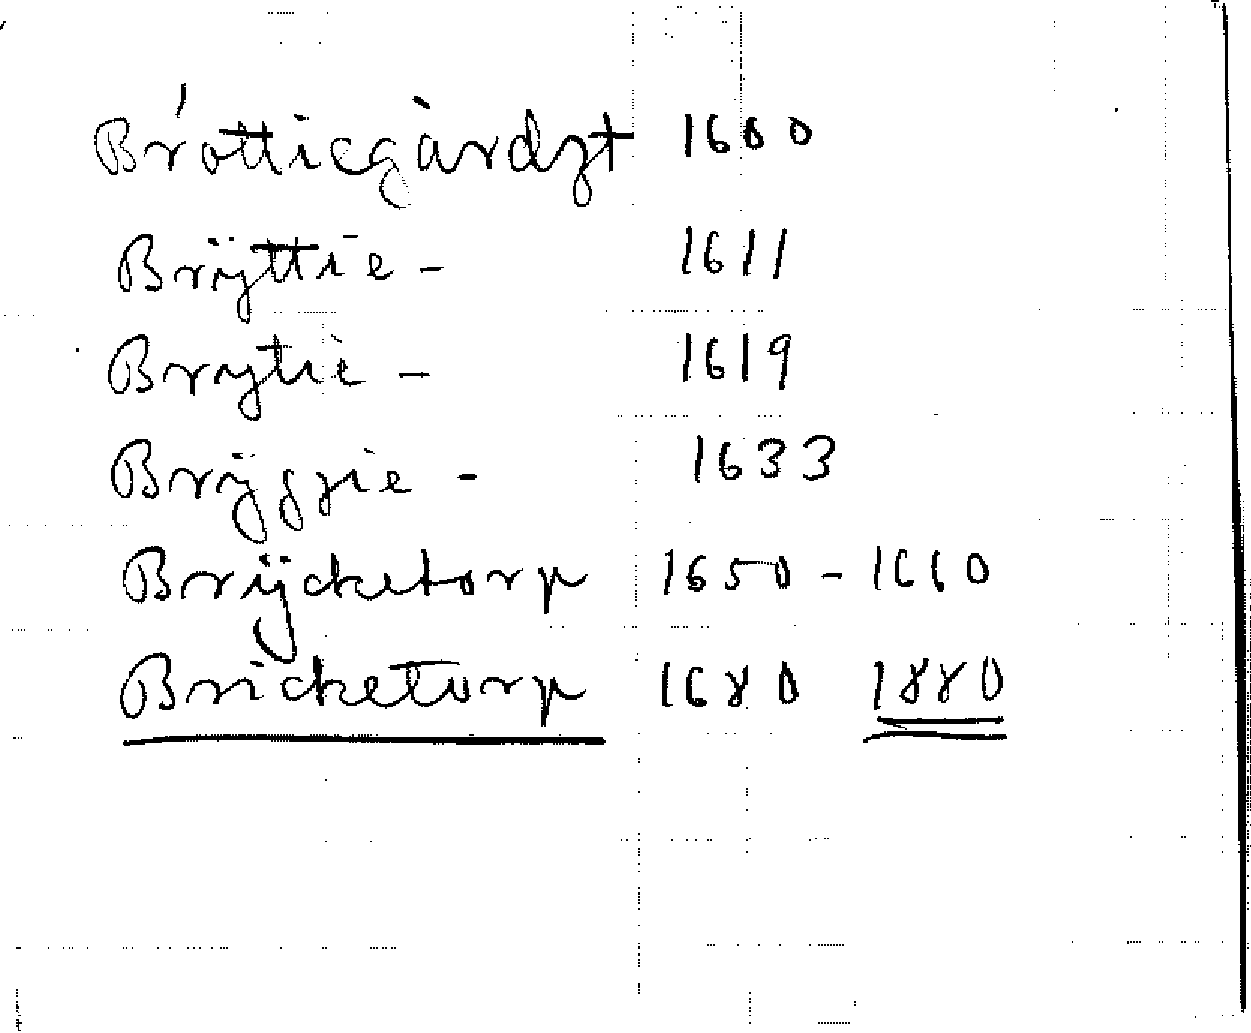 Brotticgàrdzt 1600
Brÿttie - 1611
Brytie - 1619
Brÿggie - 1633
Brÿcketorp 1650 - 1660
Bricketorp 1680 1880